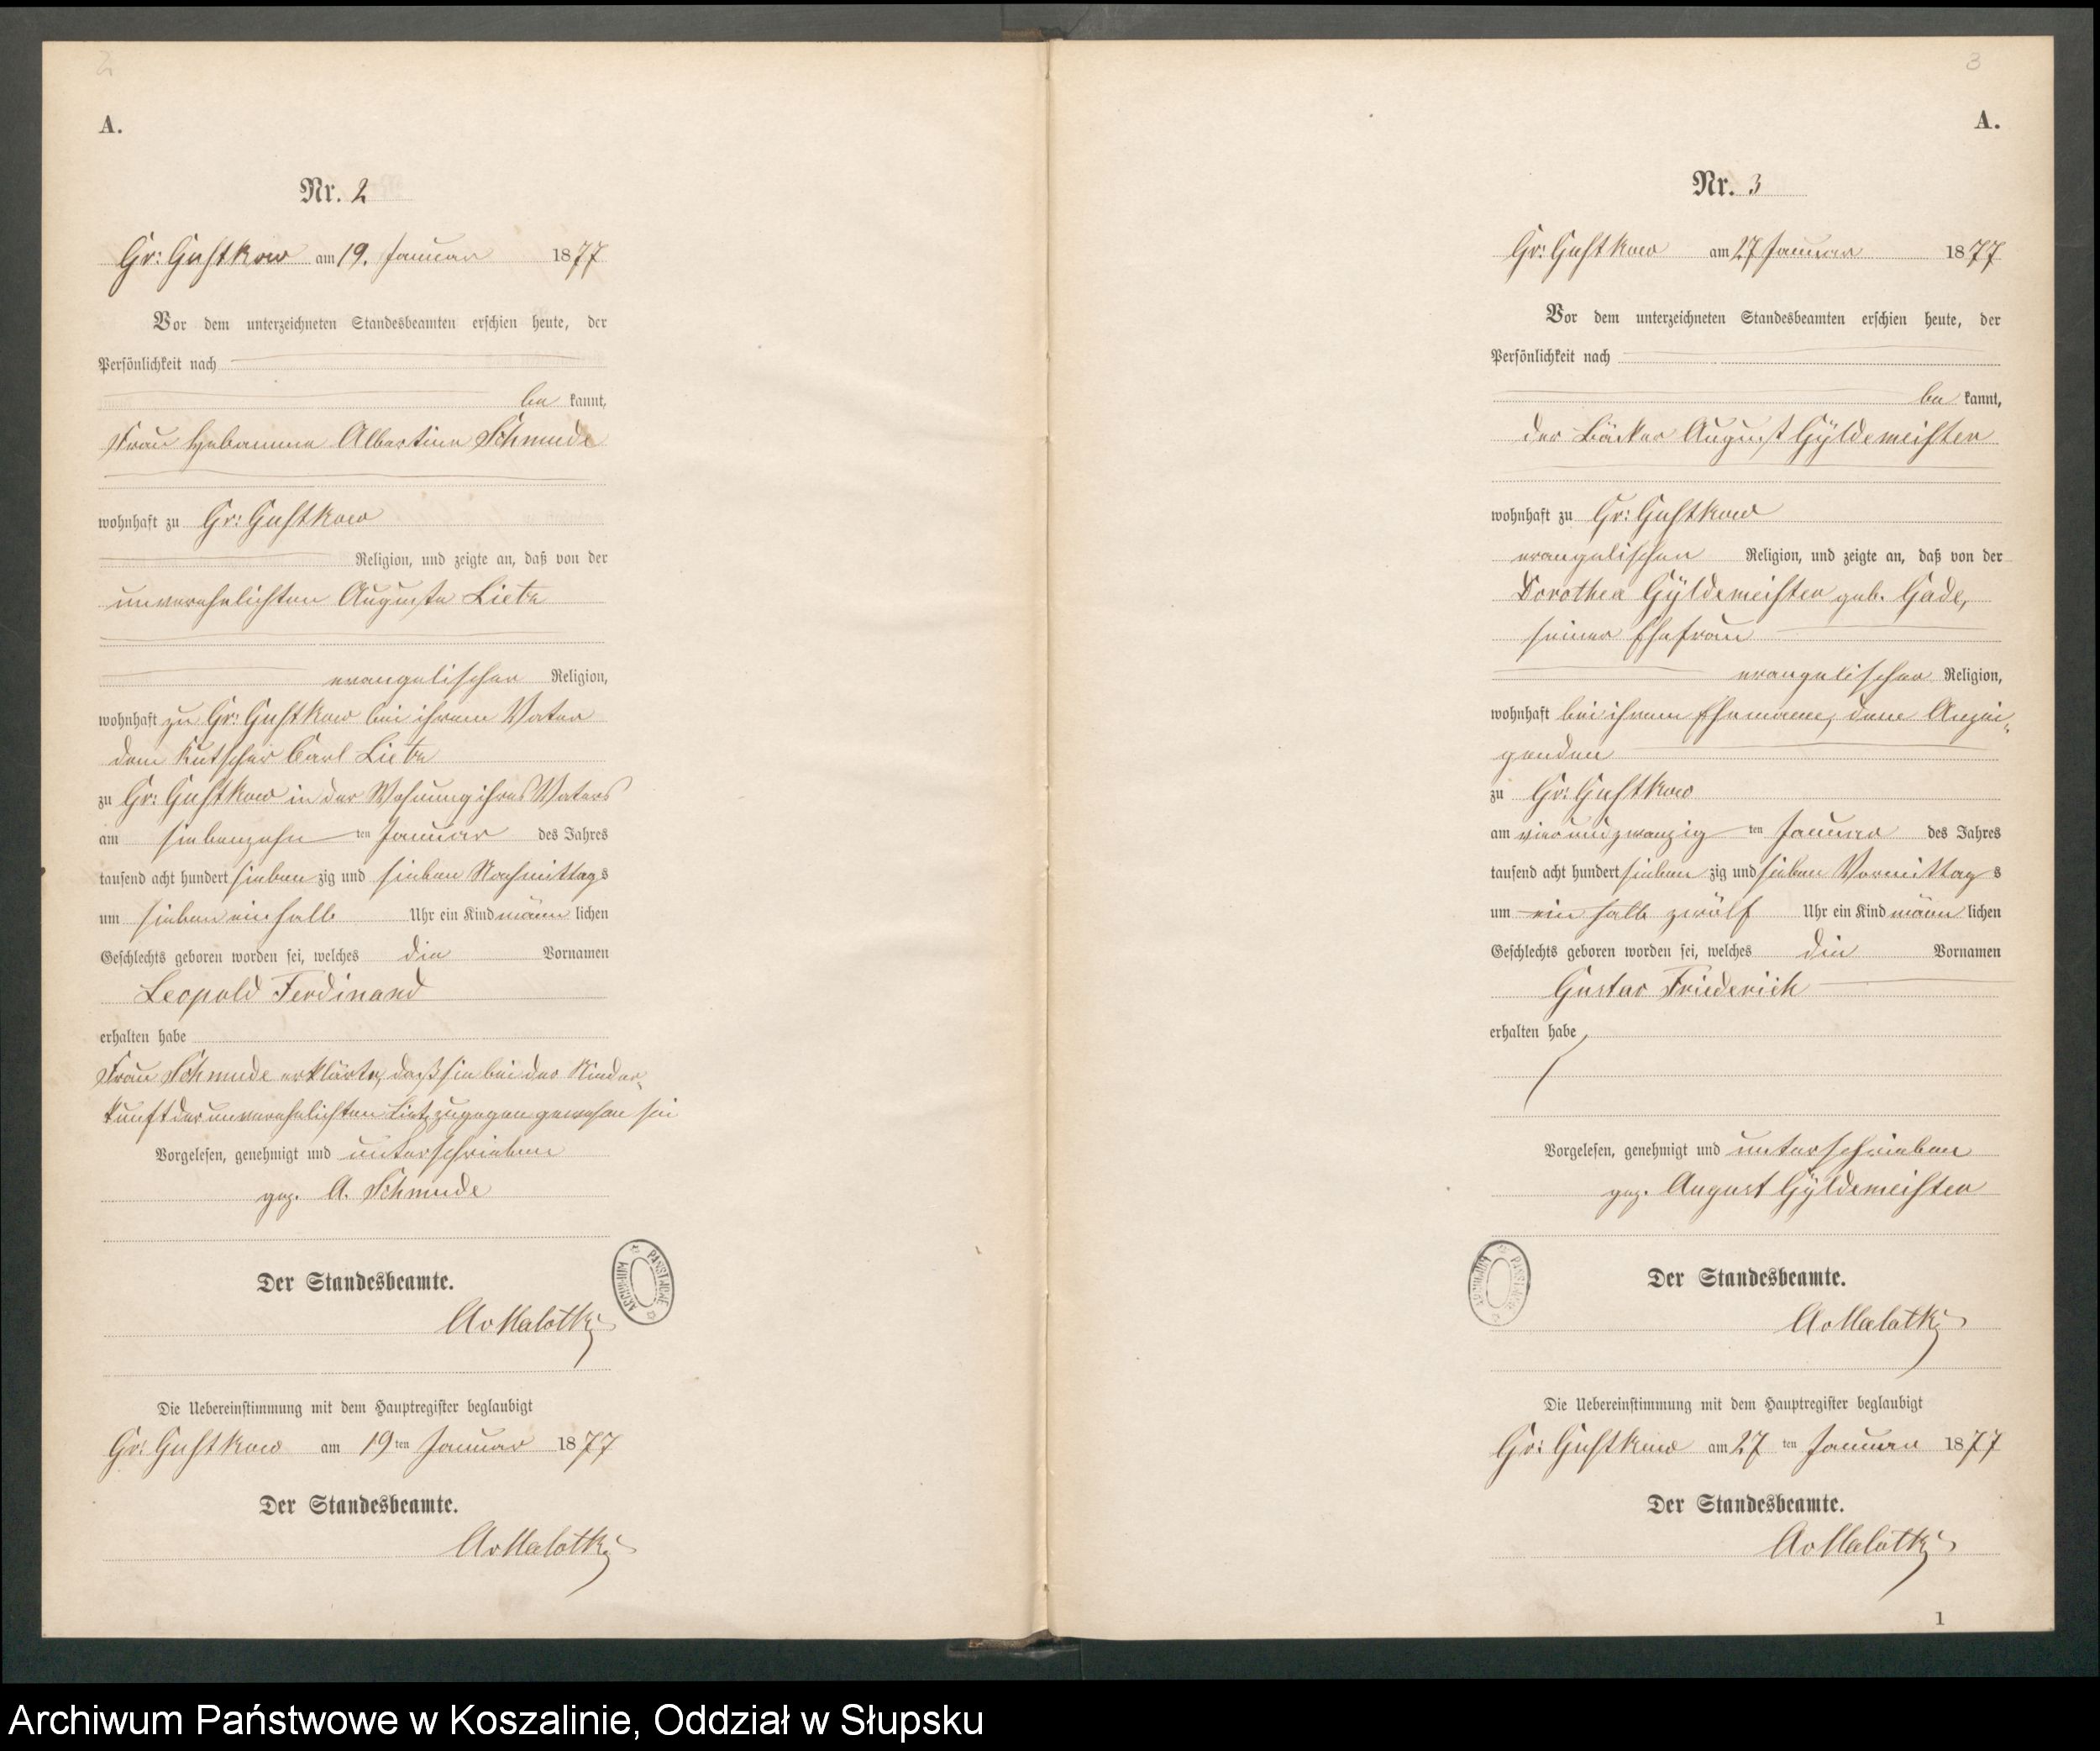 2
A.
Nr. 2
Gr: Gustkow am 19. Januar 1877
Vor dem unterzeichneten Standesbeamten erschien heute, der
Persönlichkeit nach
be kannt,
Frau Hebamme Albertine Schmude
wohnhaft zu Gr: Gustkow
Religion, und zeigte an, daß von der
unverehelichten Auguste Lietz
evangelischer Religion,
wohnhaft zu Gr: Gustkow bei ihrem Vater
dem Kutscher Carl Lietz
zu Gr: Gustkow in der Wohnung ihres Vaters
am siebenzehn ten Januar des Jahres
tausend acht hundert sieben zig und sieben Nachmittags
um sieben einhalb Uhr ein Kind männ lichen
Geschlechts geboren worden sei, welches die Vornamen
Leopold Ferdinand
erhalten habe
Frau Schmude erklärte, daß sie bei der Nieder-
kunft der unverehelichten Lietz zugegen gewesen sei
Vorgelesen, genehmigt und unterschrieben
gez. A. Schmude
Der Standesbeamte.
AvMalotki
Die Uebereinstimmung mit dem Hauptregister beglaubigt
Gr: Gustkow am 19 ten Januar 1877
Der Standesbeamte.
AvMalotki
3
A.
Nr. 3
Gr: Gustkow am 27 Januar 1877
Vor dem unterzeichneten Standesbeamten erschien heute, der
Persönlichkeit nach
be kannt,
der Bäcker August Gyldemeister
wohnhaft zu Gr: Gustkow
evangelischen Religion, und zeigte an, daß von der
Dorothea Gyldemeister geb. Gade,
seiner Ehefrau
evangelischer Religion,
wohnhaft bei ihrem Ehemanne, dem Anzei-
genden
zu Gr: Gustkow
am vierundzwanzig ten Januar des Jahres
tausend acht hundert sieben zig und sieben Vormittag s
um ein halb zwölf Uhr ein Kind männ lichen
Geschlechts geboren worden sei, welches die Vornamen
Gustav Friederich
erhalten habe
Vorgelesen, genehmigt und unterschrieben
gez. August Gyldemeister
Der Standesbeamte.
AvMalotki
Die Uebereinstimmung mit dem Hauptregister beglaubigt
Gr: Gustkow am 27 ten Januar 1877
Der Standesbeamte.
AvMalotki
1
Archiwum Państwowe w Koszalinie, Oddział w Słupsku